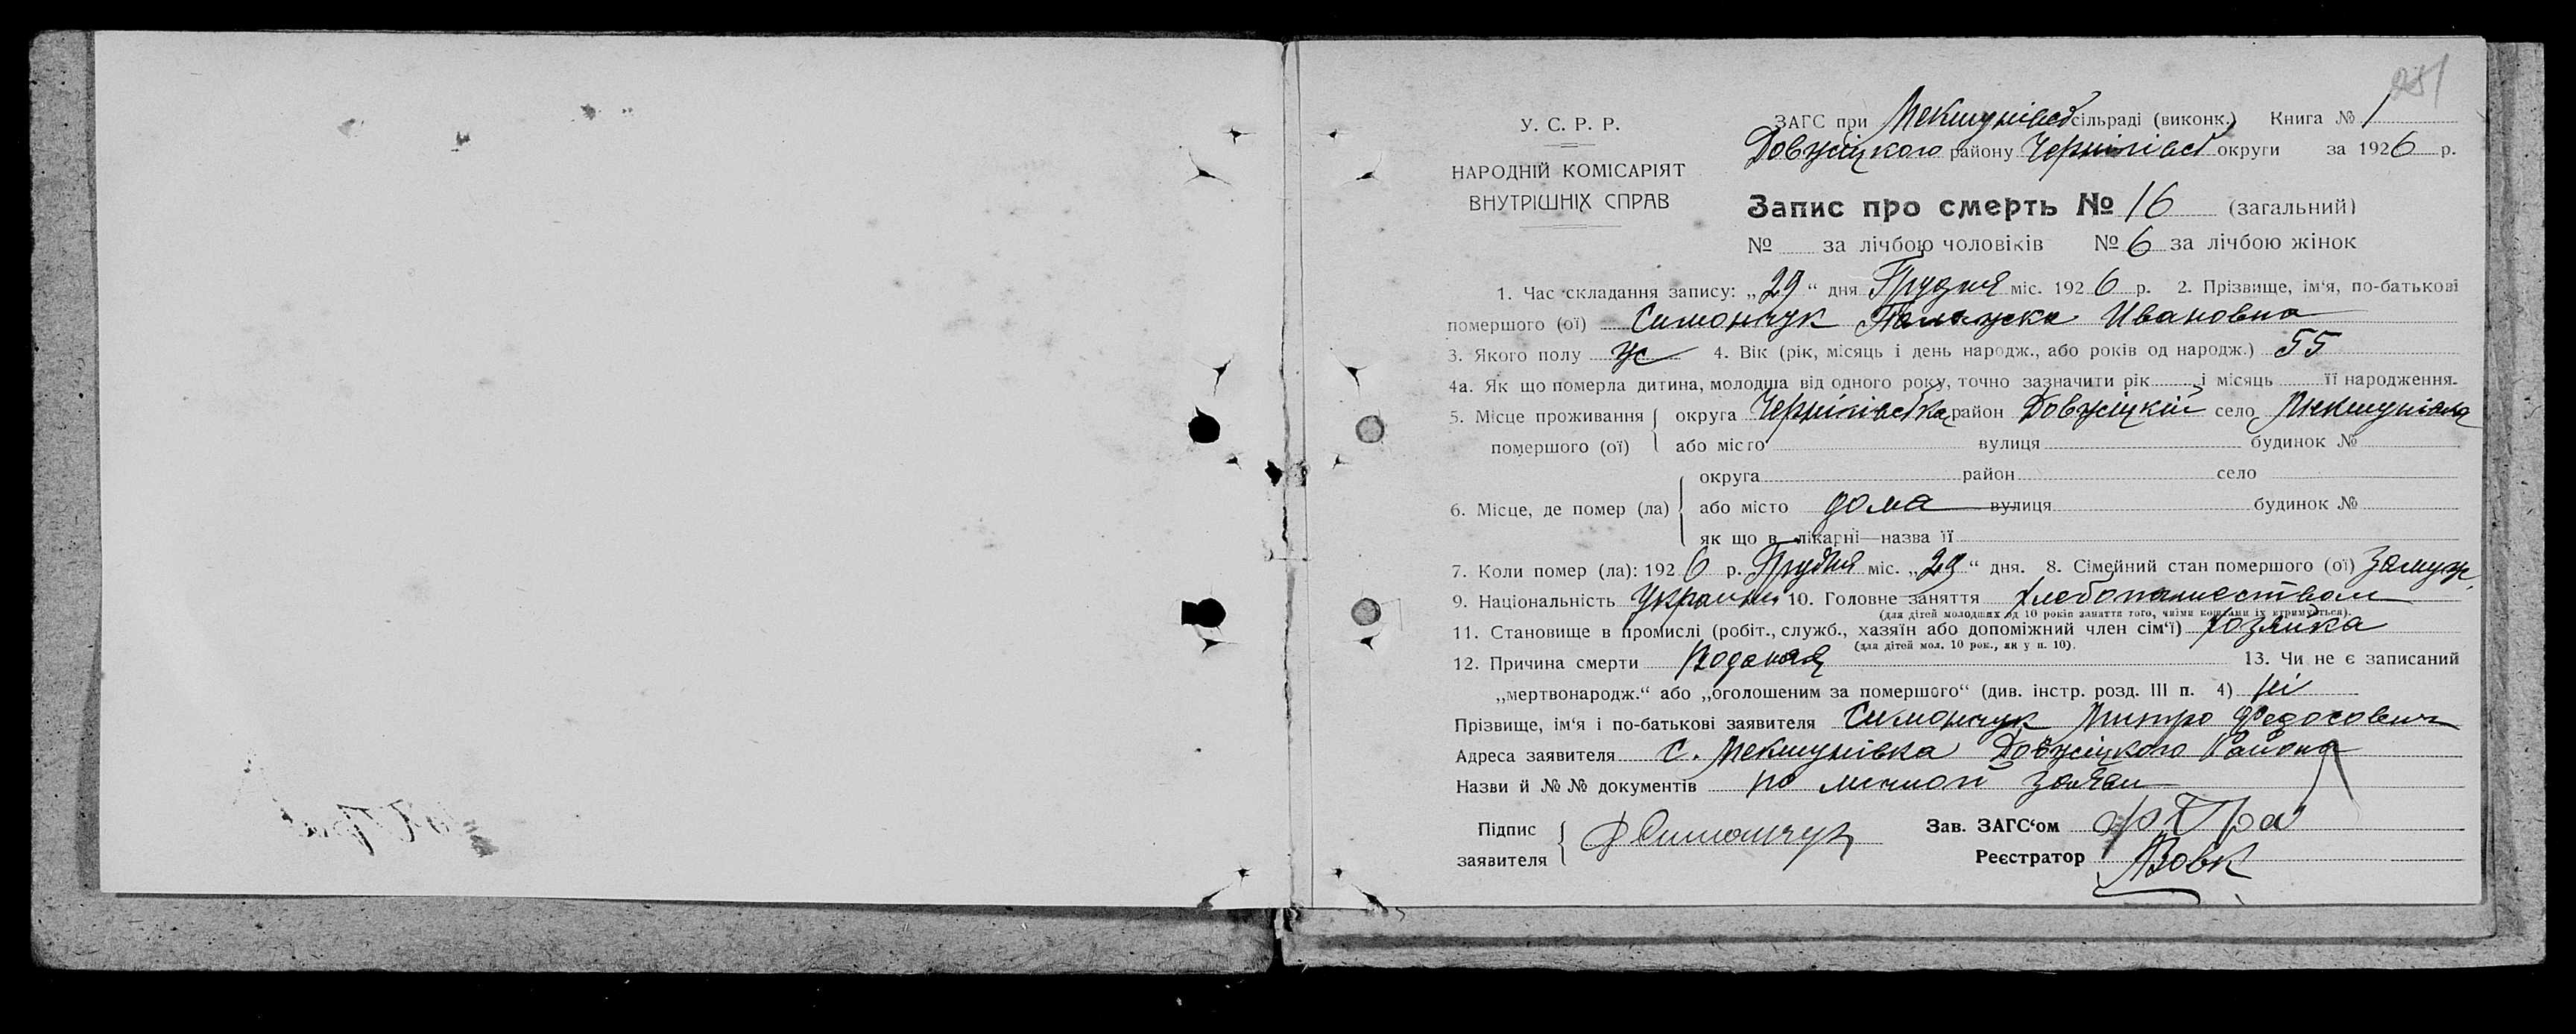 251
У. С. Р. Р.
НАРОДНІЙ КОМІСАРІЯТ
ВНУТРІШНІХ СПРАВ
ЗАГС при Мекшунівсб сільраді (виконк.) Книга № 1
Довжіцкого району Чернігівсб округи за 1926 р.
Запис про смерть № 16 (загальний)
№ за лічбою чоловіків № 6 за лічбою жінок
1. Час складання запису: „29“ дня Грудня міс. 1926 р. 2. Прізвище, ім‘я, по-батькові
помершого (ої) Симончук Ивановна
3. Якого полу ж 4. Вік (рік, місяць і день народж., або років од народж.) 55
4а. Як що померла дитина, молодша від одного року, точно зазначити рік і місяць її народження.
5. Місце проживання помершого (ої) округа Чернігівська район Довжіцкій село Мекшунівка
або місто вулиця будинок №
6. Місце, де помер (ла) округа район село
або місто дома вулиця будинок №
як що в лікарні—назва її
7. Коли помер (ла): 1926 р. Грудня міс. „29“ дня. 8. Сімейний стан помершого (ої) Замуж.
9. Національність Украин 10. Головне заняття хлебопашеством
(для дітей молодших од 10 років заняття того, чиїми коштами їх утримується).
11. Становище в промислі (робіт., служб., хазяїн або допоміжний член сім‘ї) хозяйка
(для дітей мол. 10 рок., як у п. 10).
12. Причина смерти 13. Чи не є записаний
„мертвонародж.“ або „оголошеним за помершого“ (див. інстр. розд. III п. 4) ні
Прізвище, ім‘я і по-батькові заявителя Симончук Митро Федосович
Адреса заявителя С. Мекшунівка Довжіцкого Района
Назви й №№ документів по личной Заяви
Підпис заявителя Симончук
Зав. ЗАГС‘ом
Реєстратор Вовк